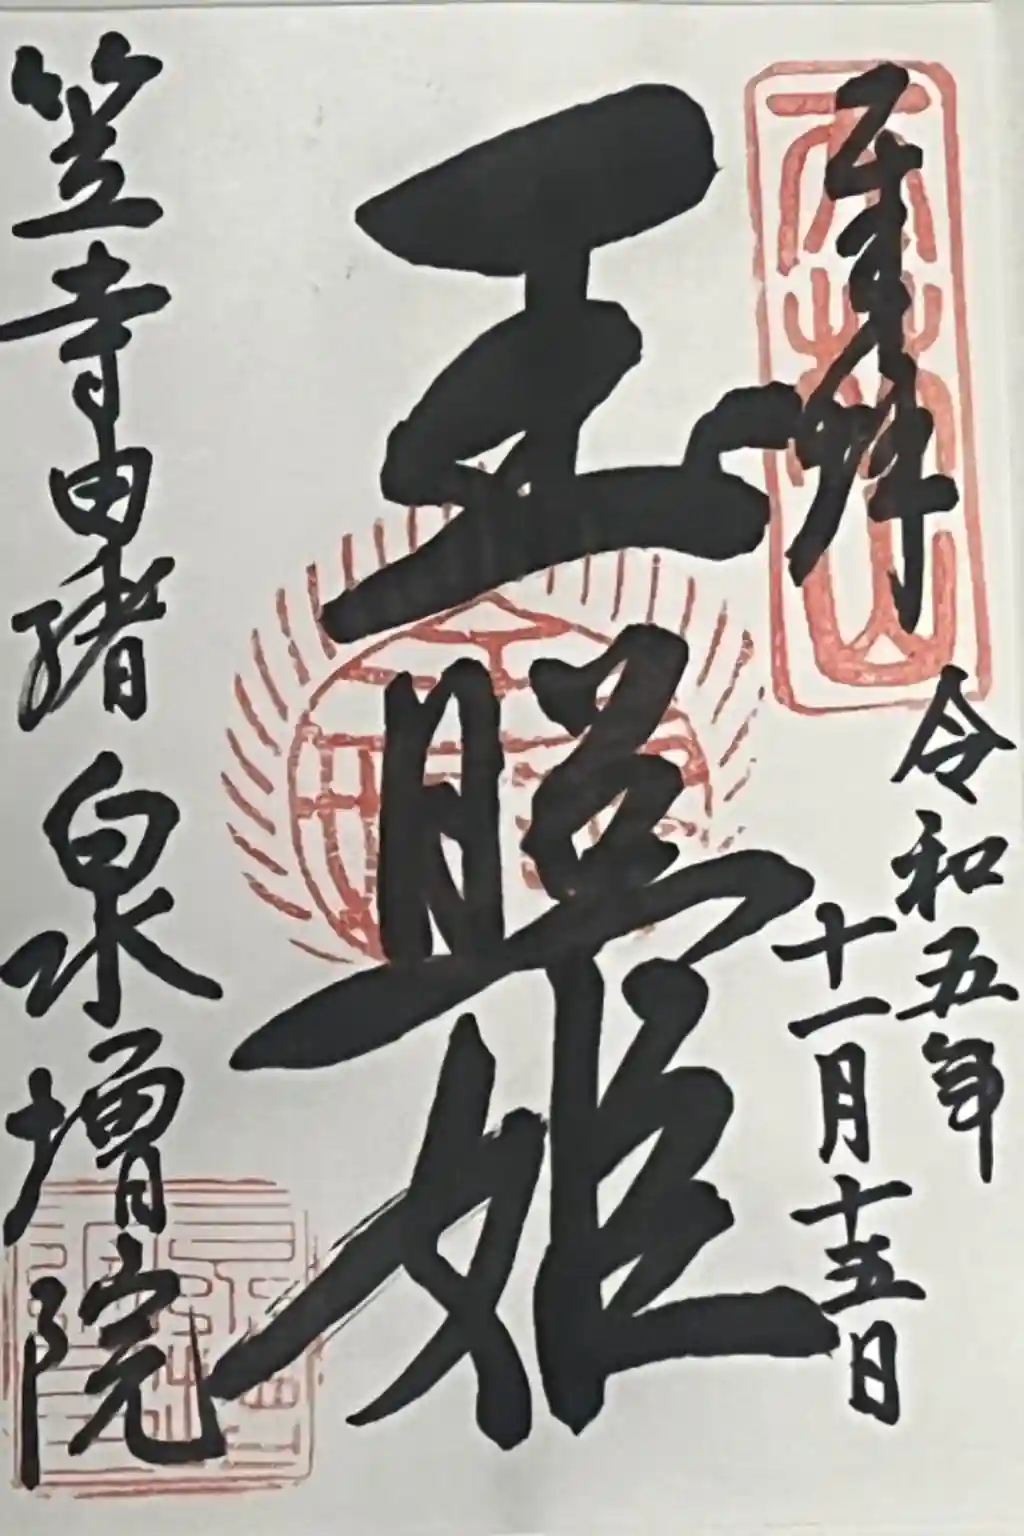 奉拝
天林山
令和五年
十一月十五日
玉照姫
笠寺由緒 泉増院